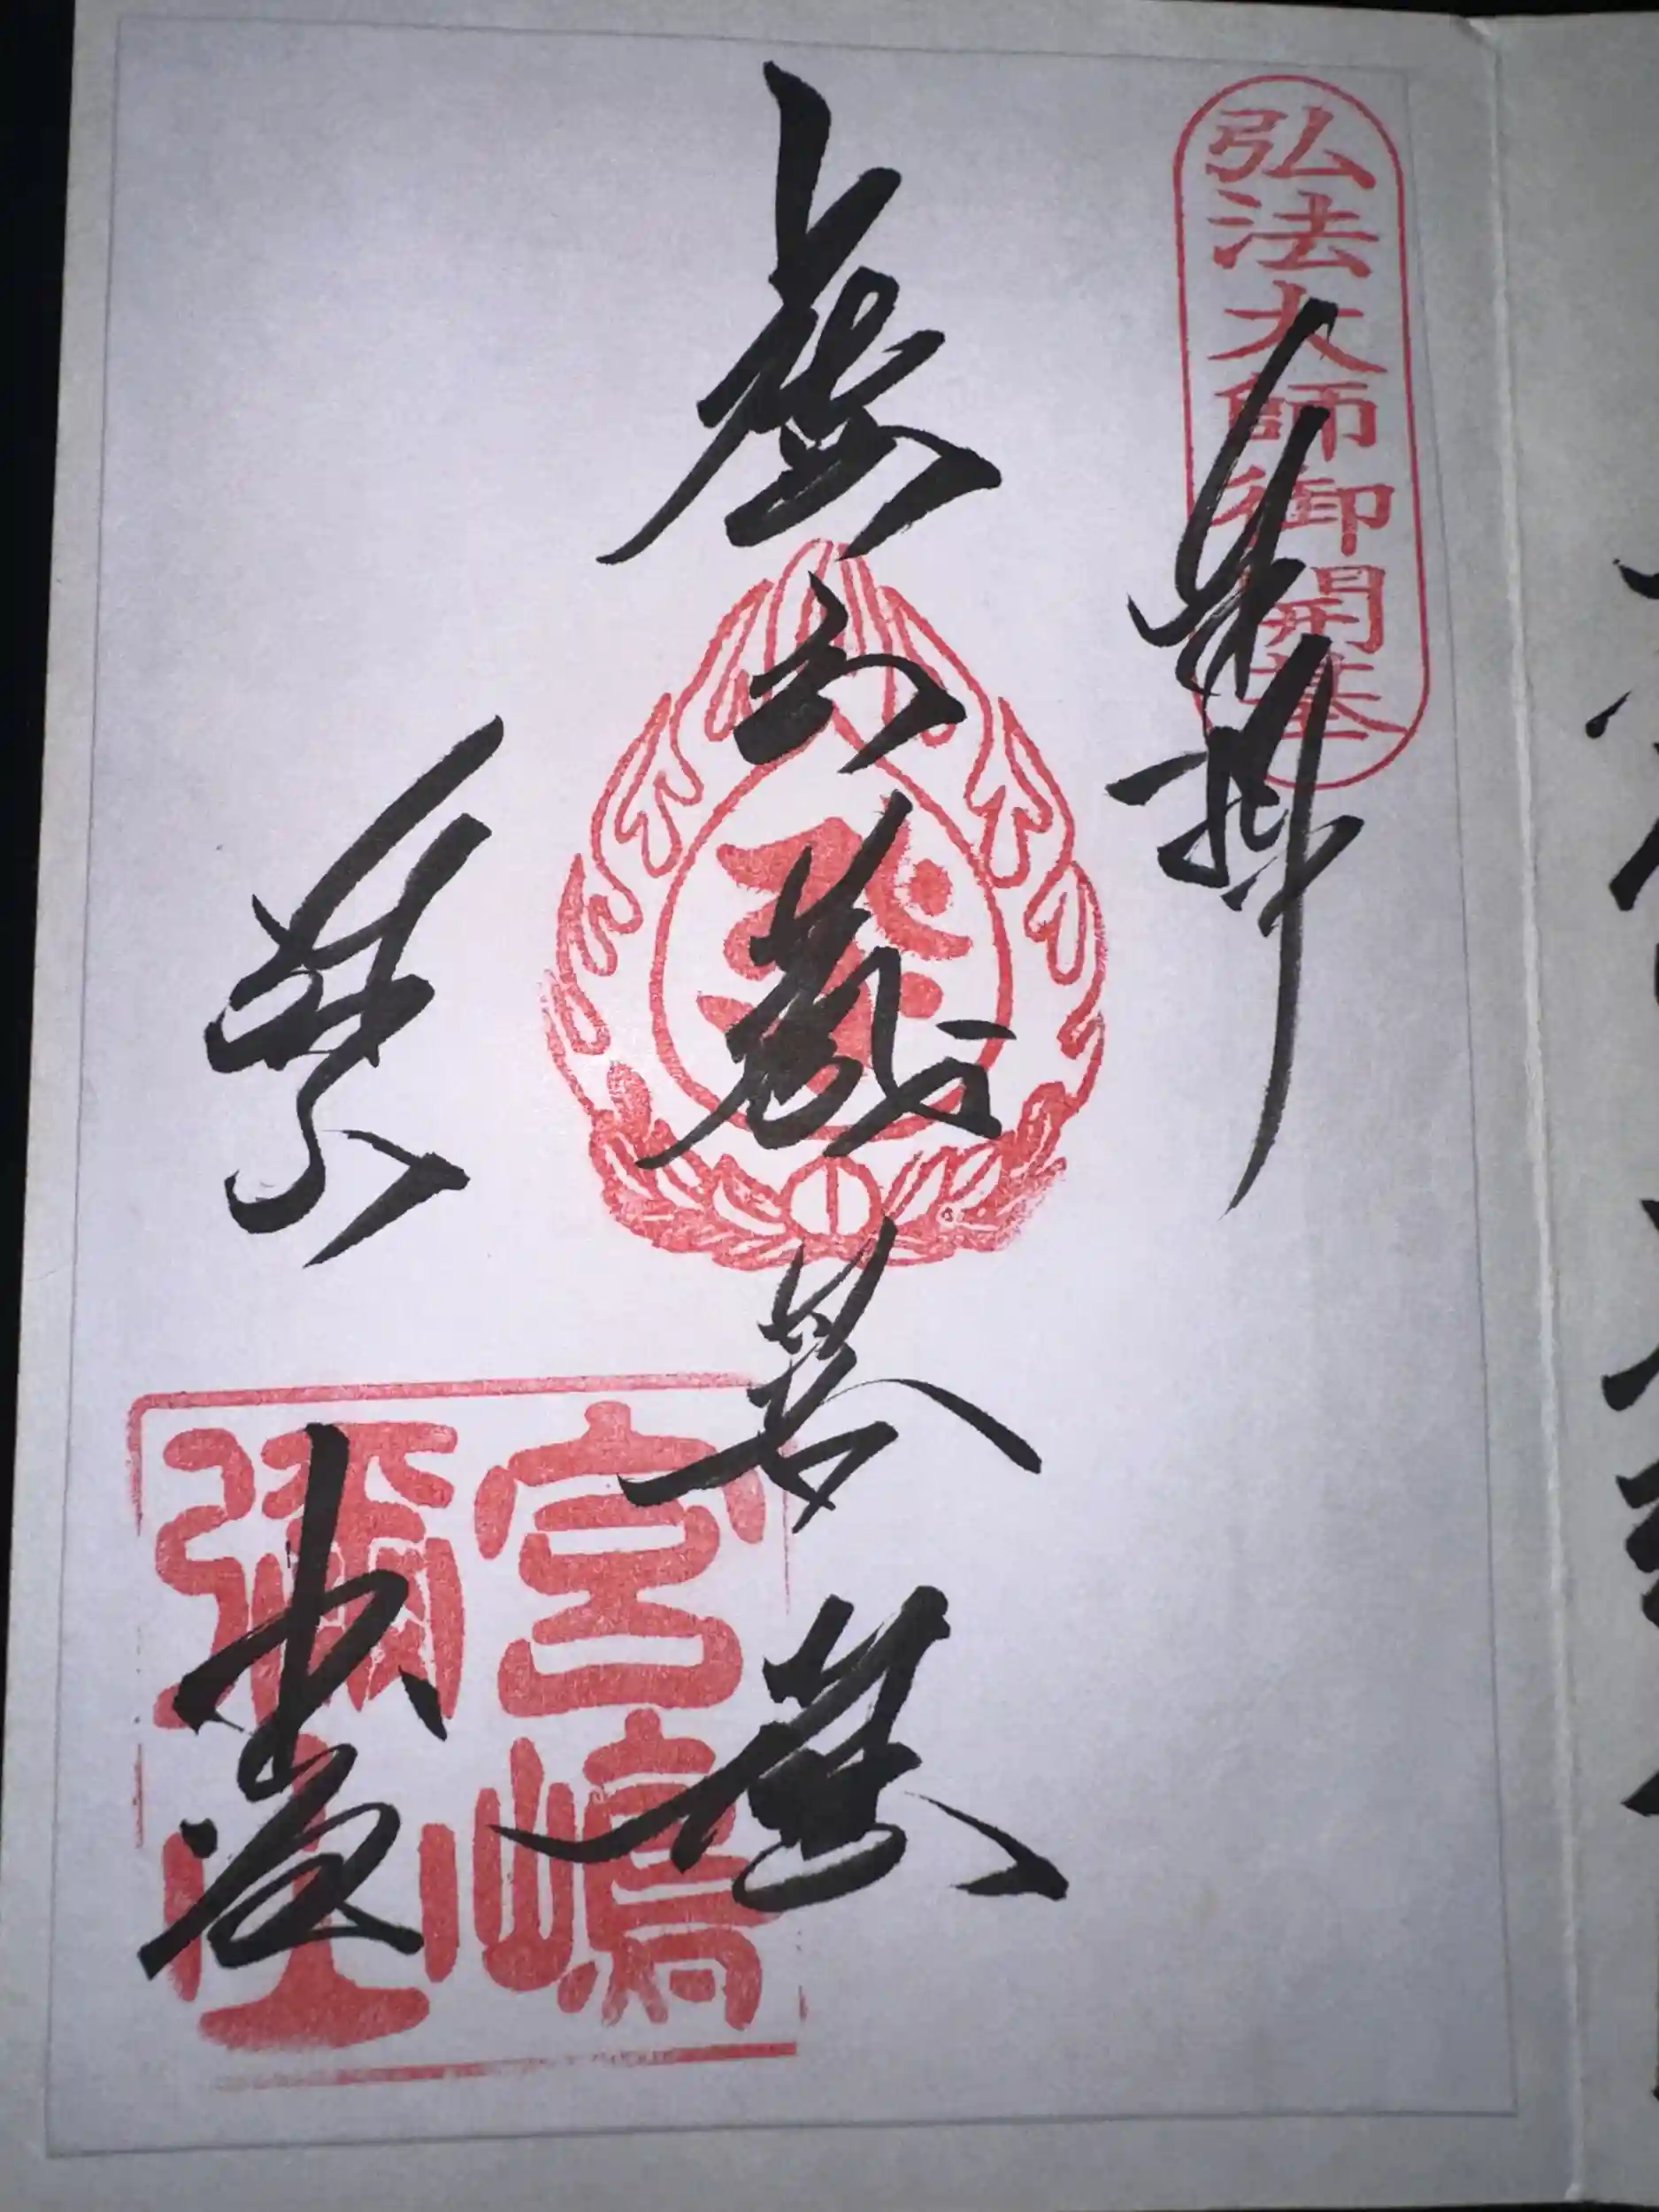 弘法大師御開基
奉拝
虚空蔵菩薩
弥山
本堂
宮嶋
彌山